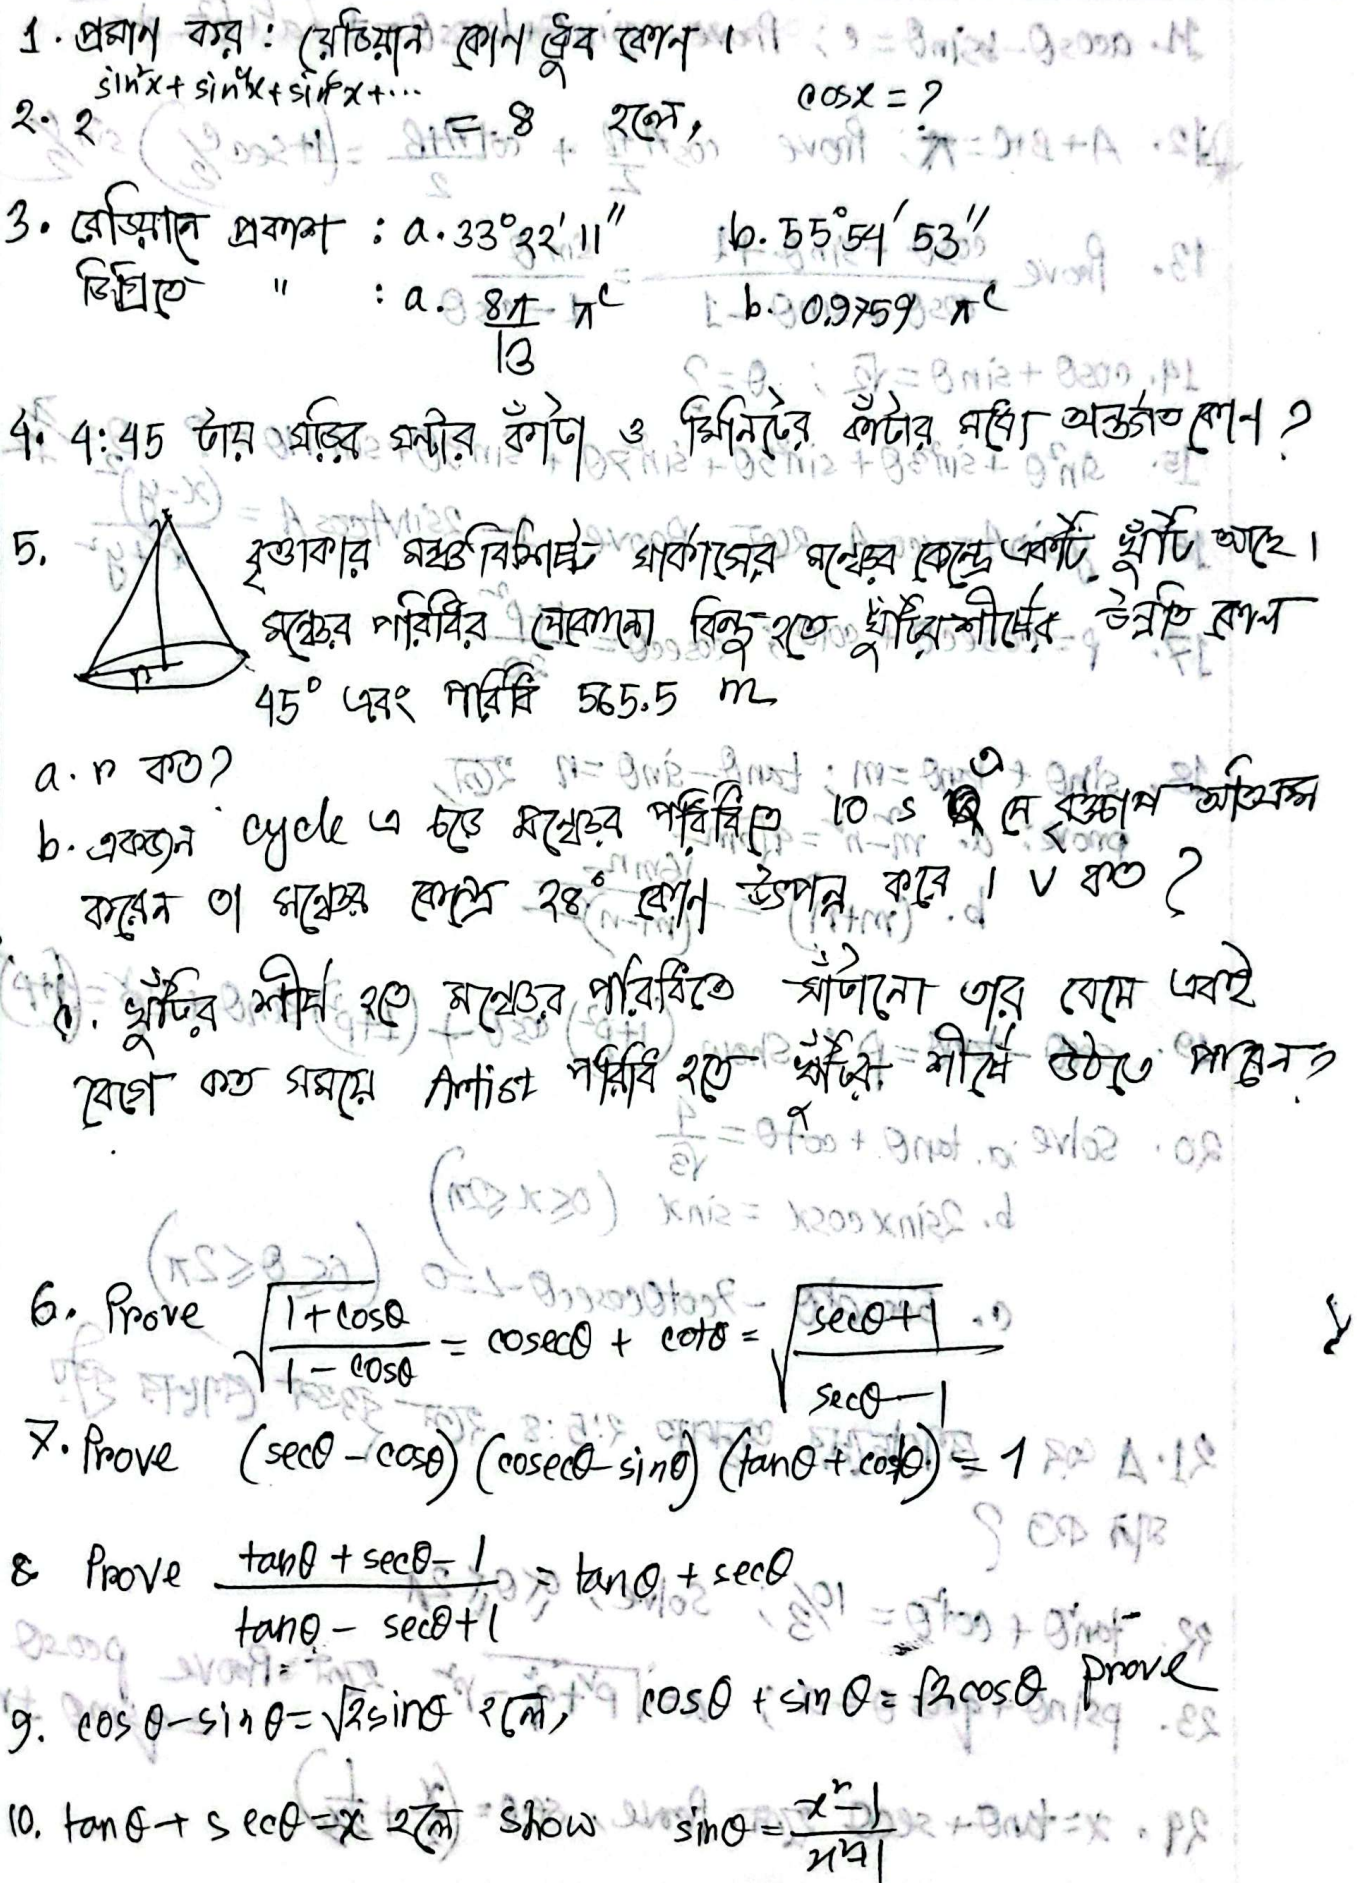 1. প্রমাণ কর : রেডিয়ান কোণ ধ্রুব কোণ ।
2. 2^(sin²x + sin⁴x + sin⁶x + ...) = 8 হলে, cosx = ?
3. রেডিয়ানে প্রকাশ : a. 33°22'11" b. 55°54'53"
ডিগ্রিতে " : a. 8π/13 π^c b. 0.9759 π^c
4. 4:45 টায় ঘড়ির ঘন্টার কাঁটা ও মিনিটের কাঁটার মধ্যে অন্তর্গত কোণ ?
5. বৃত্তাকার মঞ্চবিশিষ্ট সার্কাসের মঞ্চের কেন্দ্রে একটি খুঁটি আছে ।
মঞ্চের পরিধির যেকোনো বিন্দু হতে খুঁটির শীর্ষের উন্নতি কোণ
45° এবং পরিধি 565.5 m
r
a. r কত?
b. একজন cycle এ চড়ে মঞ্চের পরিধিতে 10 s এ যে বৃত্তচাপ অতিক্রম
করেন তা মঞ্চের কেন্দ্রে 28° কোণ উৎপন্ন করে । v কত ?
c. খুঁটির শীর্ষ হতে মঞ্চের পরিধিতে সাঁটানো তার বেয়ে একই
বেগে কত সময়ে Artist পরিধি হতে খুঁটির শীর্ষে উঠতে পারেন?
6. Prove √((1+cosθ)/(1-cosθ)) = cosecθ + cotθ = √((secθ+1)/(secθ-1))
7. Prove (secθ-cosθ) (cosecθ-sinθ) (tanθ+cotθ) = 1
8 Prove (tanθ + secθ-1)/(tanθ - secθ+1) = tanθ + secθ
9. cosθ-sinθ=√2sinθ হলে, cosθ + sinθ = √2cosθ prove
10. tanθ + secθ = x হলে show sinθ = (x²-1)/(x²+1)